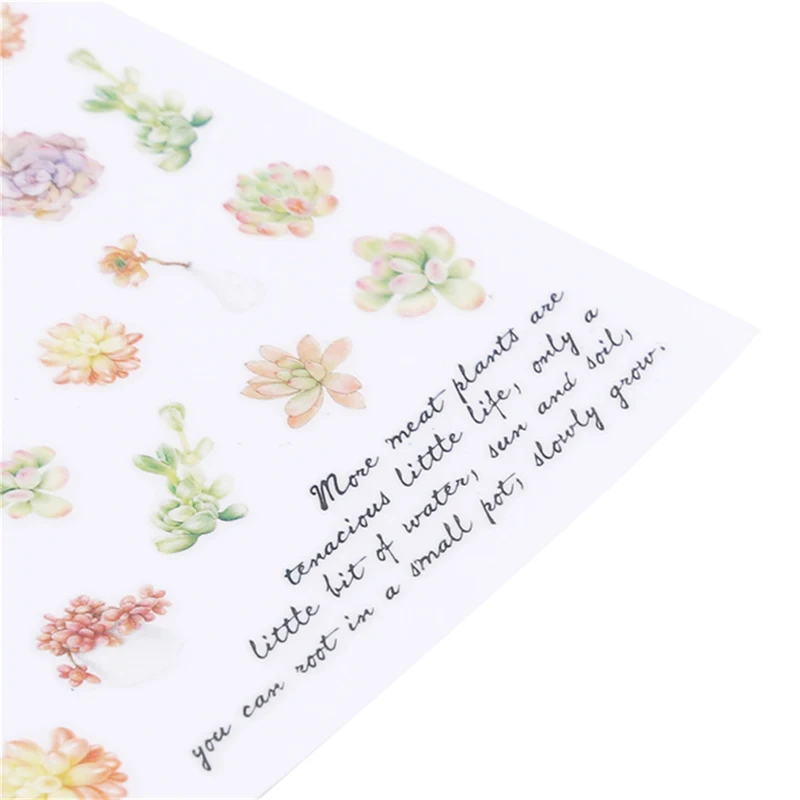 More meat plants are
tenacious little life, only a
little bit of water, sun and soil,
you can root in a small pot, slowly grow.